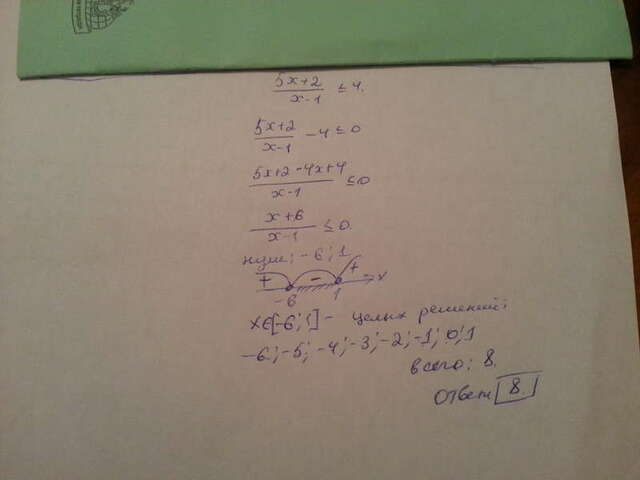 5x+2/x-1 ≤ 4.
5x+2/x-1 -4 ≤ 0
5x+2-4x+4/x-1 ≤ 0
x+6/x-1 ≤ 0.
нули: -6; 1
+ - + x
-6 1
x∈[-6; 1] - целых решений:
-6; -5; -4; -3; -2; -1; 0; 1
всего: 8.
Ответ 8.